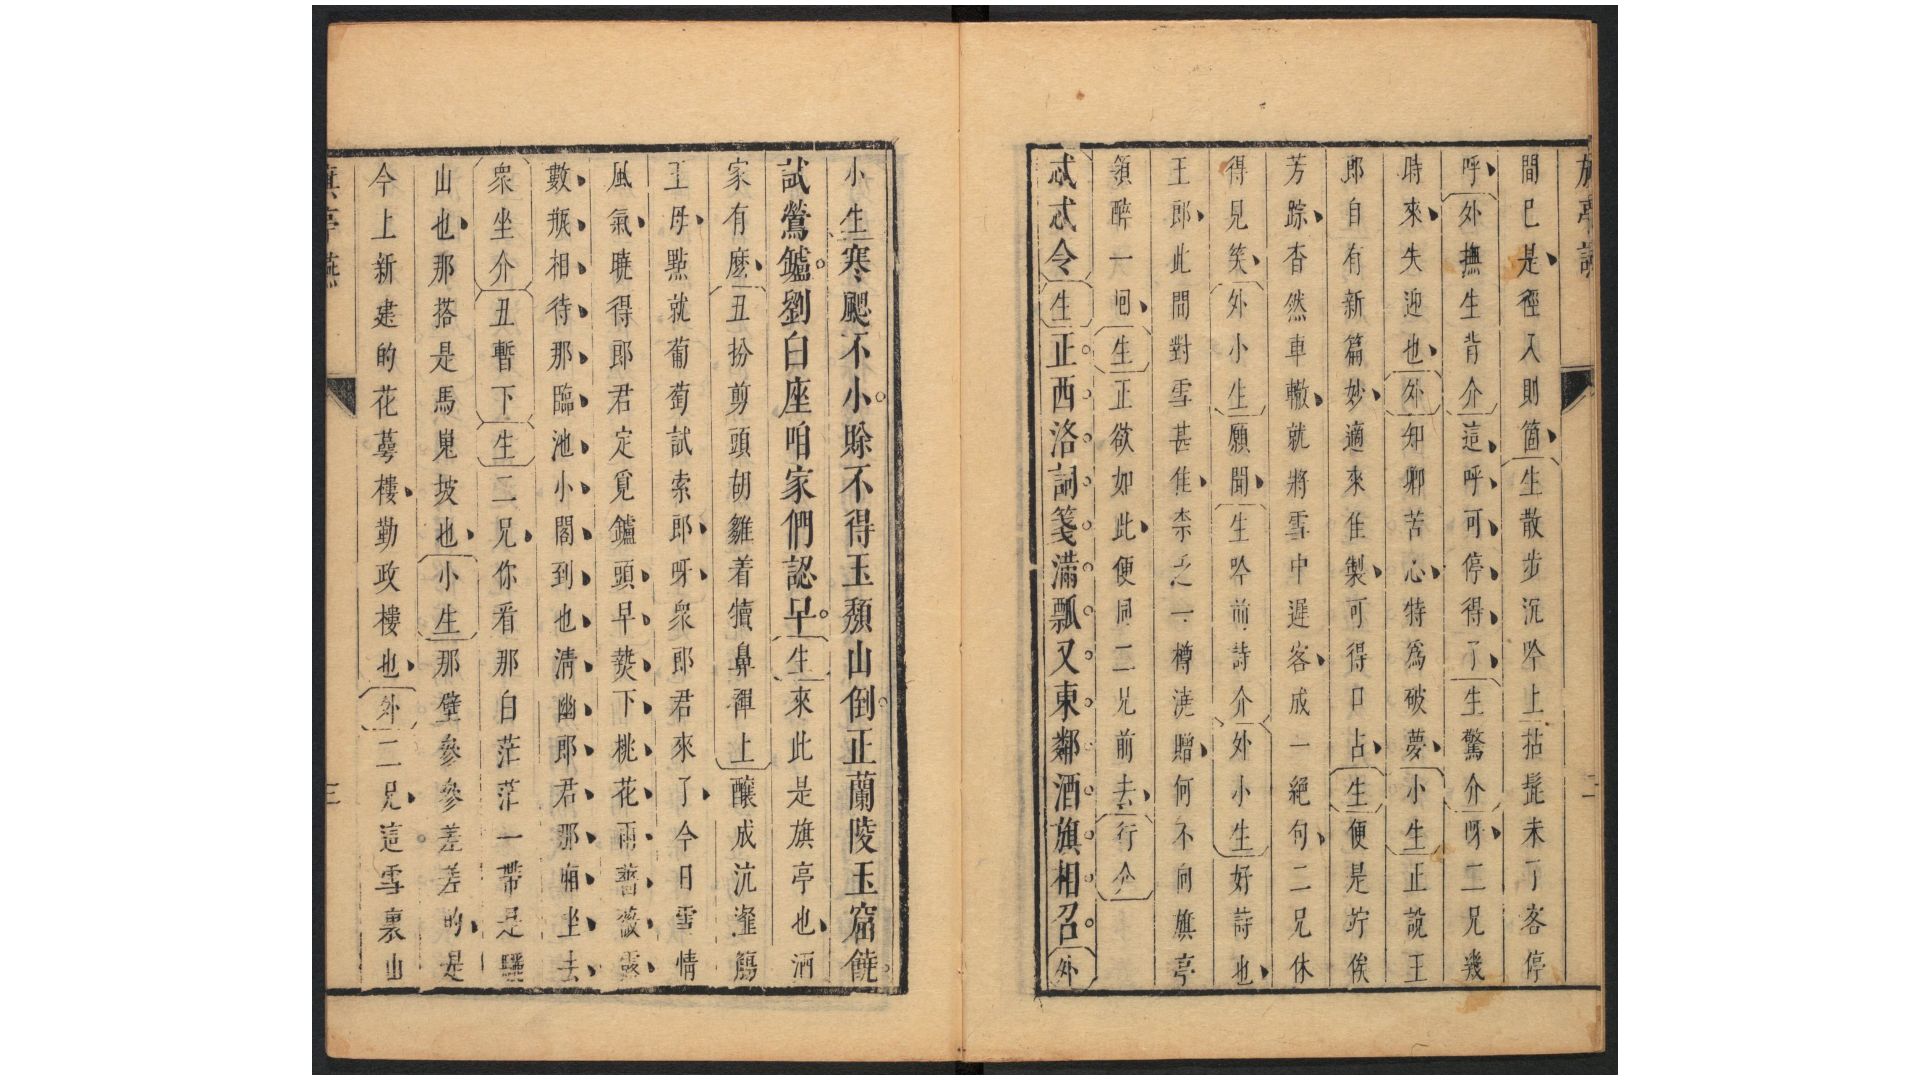 間巳是徑入則箇生散步沉吟上拈髭未了客停
呼外撫生背介這呼可停得了生驚介呀二兄幾
時來失迎也外知卿苦心特爲破夢小生正說王
郎自有新篇妙適來佳製可得口占生便是竚俟
芳踪杳然車轍就將雪中遲客成一絶句二兄休
得見笑外小生願聞生吟前詩介外小生好詩也
王郎此間對雪甚佳柰乏一樽澆贈何不向旗亭
領醉一回生正欲如此便同二兄前去行介
忒忒令生正西洛詞箋滿瓢又東鄰酒旗相召外
小生寒颸不小賖不得玉頽山倒正蘭陵玉窟饒
試鶯鑪劉白座咱家們認早生來此是旗亭也酒
家有麽丑扮剪頭胡雛着犢鼻褌上釀成沆瀣觴
王母點就葡萄試索郎呀衆郎君來了今日雪情
風氣曉得郎君定覓鑪頭早㸑下桃花雨薔薇露
數瓶相待那臨池小閣到也清幽郎君那廂坐去
衆坐介丑暫下生二兄你看那白茫茫一帶是驪
山也那搭是馬嵬坡也小生那壁參參差差的是
今上新建的花萼樓勤政樓也外二兄這雪裏山
三